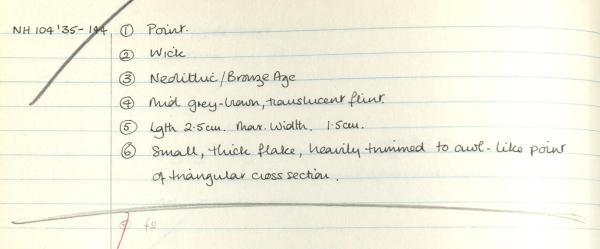 NH 104 '35-144 ① Point.
② Wick
③ Neolithic/Bronze Age
④ Mid grey-brown, translucent flint.
⑤ Lgth 2.5cm. Max. Width. 1.5cm.
⑥ Small, thick flake, heavily trimmed to awl-like point
of triangular cross section.